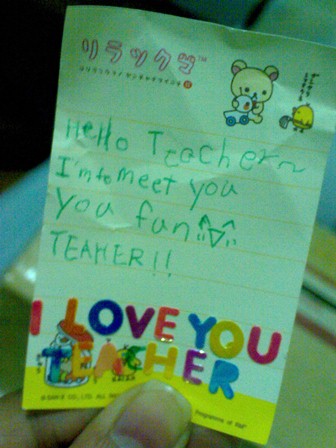 リラックマ™
Hello Teacher~
I'm to meet you
You fun
TEAHER!!
I LOVE YOU
TEACHER
©SAN-X CO., LTD. ALL